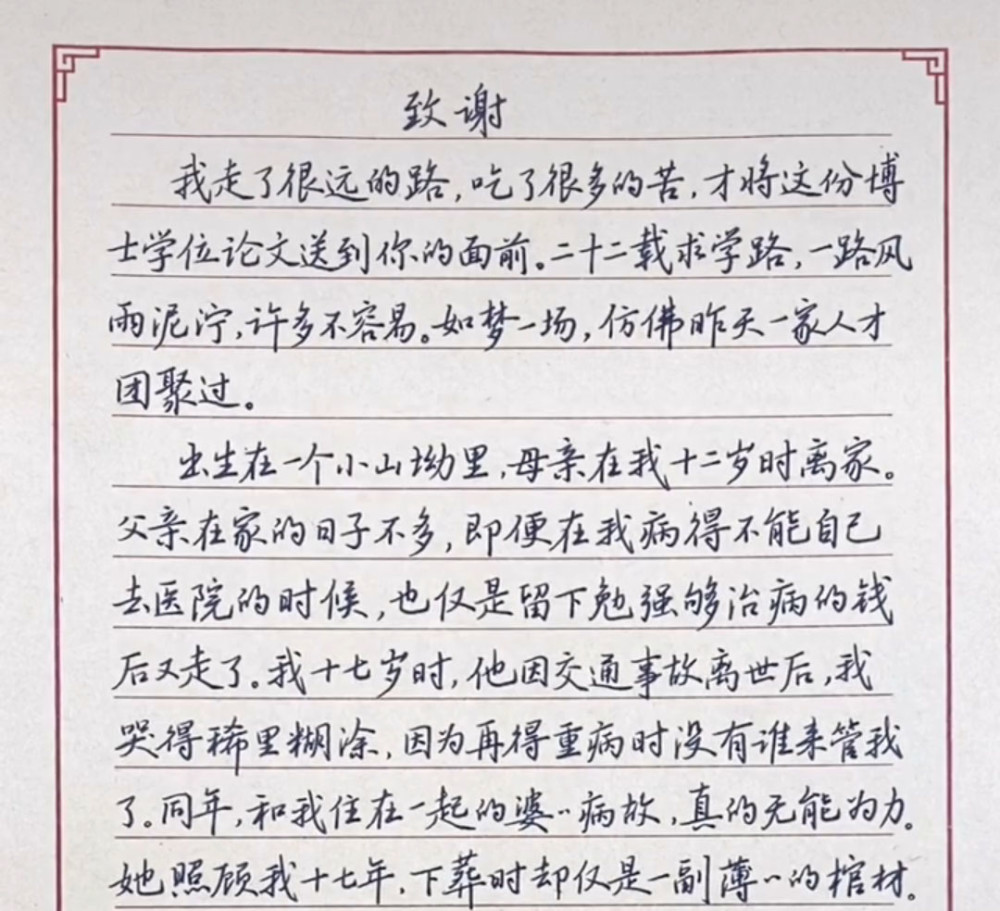 致谢
我走了很远的路,吃了很多的苦,才将这份博
士学位论文送到你的面前。二十二载求学路,一路风
雨泥泞,许多不容易。如梦一场,仿佛昨天一家人才
团聚过。
出生在一个小山坳里,母亲在我十二岁时离家。
父亲在家的日子不多,即便在我病得不能自己
去医院的时候,也仅是留下勉强够治病的钱
后又走了。我十七岁时,他因交通事故离世后,我
哭得稀里糊涂,因为再得重病时没有谁来管我
了。同年,和我住在一起的婆〃病故,真的无能为力。
她照顾我十七年,下葬时却仅是一副薄〃的棺材。